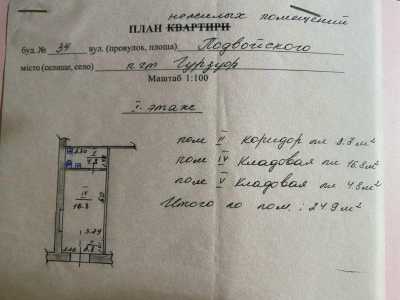 нежилых помещений
ПЛАН КВАРТИРИ
буд. № 34 вул. (провулок, площа) Подвойского
місто (селище, село) пгт Гурзуф
Масштаб 1:100
I этаж
пом II коридор пл 3.3 м²
пом IV Кладовая пл 16.8 м²
пом V кладовая пл 4.8 м²
Итого по пом. : 24.9 м²
IV
16.8